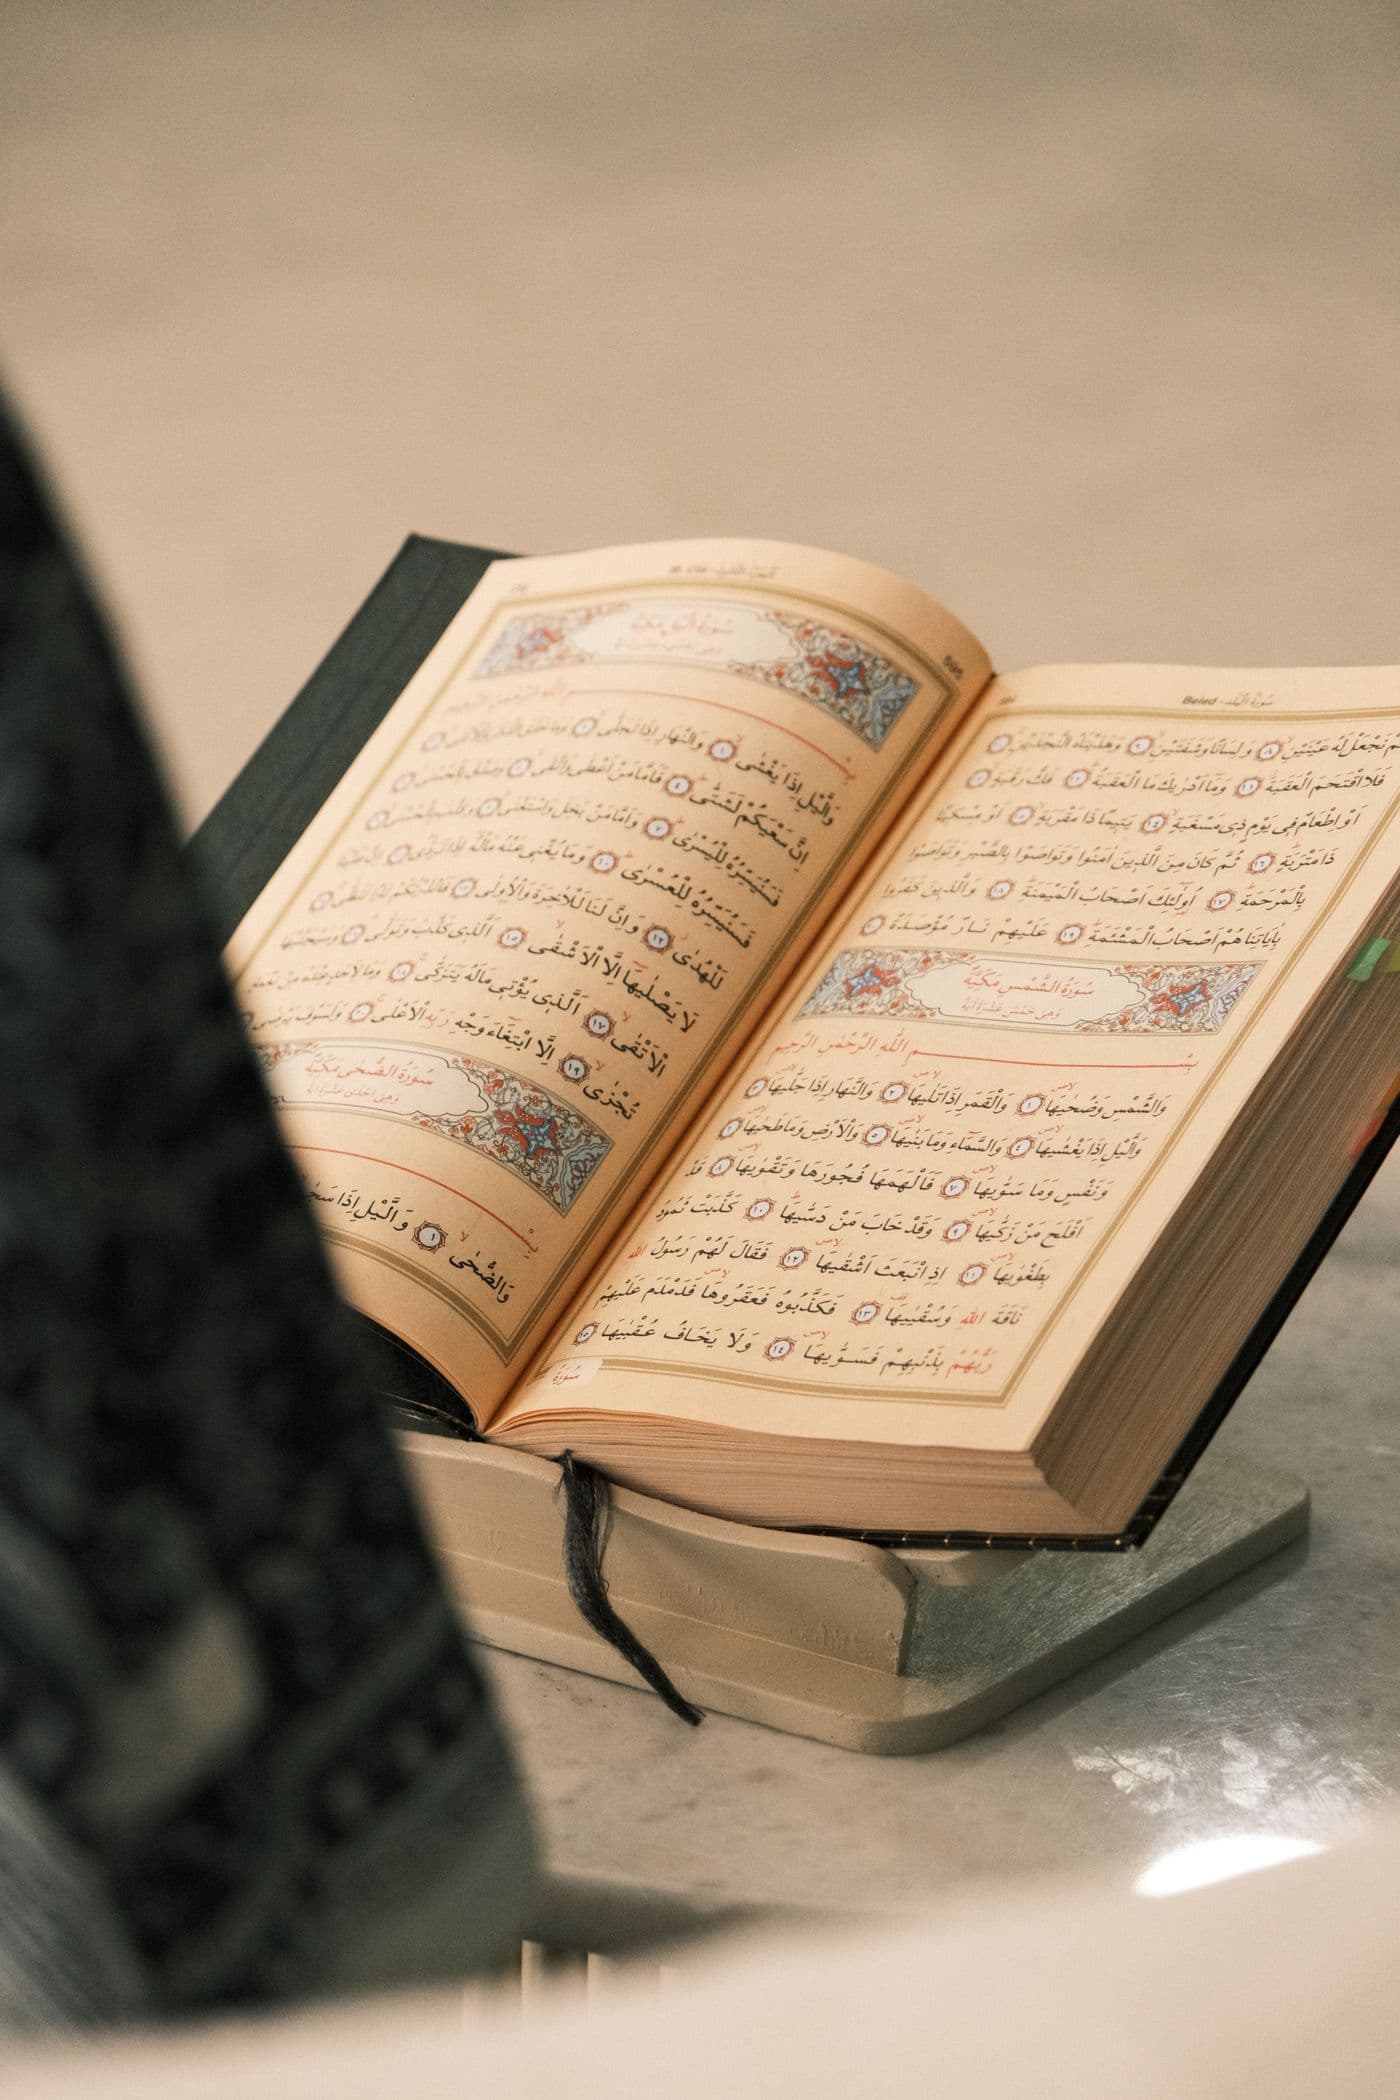 Beled - سُورَةُ الْبَلَدِ
نَجْعَلْ لَهُ عَيْنَيْنِۙ ٨ وَلِسَانًا وَشَفَتَيْنِۙ ٩ وَهَدَيْنَاهُ النَّجْدَيْنِۚ ١٠
فَلَا اقْتَحَمَ الْعَقَبَةَۘ ١١ وَمَٓا اَدْرٰيكَ مَا الْعَقَبَةُۜ ١٢ فَكُّ رَقَبَةٍۙ ١٣
اَوْ اِطْعَامٌ فِى يَوْمٍ ذِى مَسْغَبَةٍۙ ١٤ يَتِيمًا ذَا مَقْرَبَةٍۙ ١٥ اَوْ مِسْكِينًا
ذَا مَتْرَبَةٍۜ ١٦ ثُمَّ كَانَ مِنَ الَّذِينَ اٰمَنُوا وَتَوَاصَوْا بِالصَّبْرِ وَتَوَاصَوْا
بِالْمَرْحَمَةِۜ ١٧ اُو۬لٰٓئِكَ اَصْحَابُ الْمَيْمَنَةِۜ ١٨ وَالَّذِينَ كَفَرُوا
بِاٰيَاتِنَا هُمْ اَصْحَابُ الْمَشْـَٔمَةِۜ ١٩ عَلَيْهِمْ نَارٌ مُؤْصَدَةٌ ٢٠
سُورَةُ الشَّمْسِ مَكِّيَّةٌ
وَهِىَ خَمْسَ عَشْرَةَ اٰيَةً
بِسْمِ اللّٰهِ الرَّحْمٰنِ الرَّحِيمِ
وَالشَّمْسِ وَضُحٰيهَاۙ ١ وَالْقَمَرِ اِذَا تَلٰيهَاۙ ٢ وَالنَّهَارِ اِذَا جَلّٰيهَاۙ ٣
وَالَّيْلِ اِذَا يَغْشٰيهَاۙ ٤ وَالسَّمَٓاءِ وَمَا بَنٰيهَاۙ ٥ وَالْاَرْضِ وَمَا طَحٰيهَاۙ ٦
وَنَفْسٍ وَمَا سَوّٰيهَاۙ ٧ فَاَلْهَمَهَا فُجُورَهَا وَتَقْوٰيهَاۙ ٨ قَدْ
اَفْلَحَ مَنْ زَكّٰيهَاۙ ٩ وَقَدْ خَابَ مَنْ دَسّٰيهَاۜ ١٠ كَذَّبَتْ ثَمُودُ
بِطَغْوٰيهَاۙ ١١ اِذِ انْبَعَثَ اَشْقٰيهَاۙ ١٢ فَقَالَ لَهُمْ رَسُولُ اللّٰهِ
نَاقَةَ اللّٰهِ وَسُقْيٰيهَاۜ ١٣ فَكَذَّبُوهُ فَعَقَرُوهَاۙ فَدَمْدَمَ عَلَيْهِمْ
رَبُّهُمْ بِذَنْبِهِمْ فَسَوّٰيهَاۙ ١٤ وَلَا يَخَافُ عُقْبٰيهَا ١٥
سُورَةُ
595
بِسْمِ اللّٰهِ الرَّحْمٰنِ الرَّحِيمِ
وَالَّيْلِ اِذَا يَغْشٰىۙ ١ وَالنَّهَارِ اِذَا تَجَلّٰىۙ ٢
اِنَّ سَعْيَكُمْ لَشَتّٰىۜ ٤ فَاَمَّا مَنْ اَعْطٰى وَاتَّقٰىۙ ٥
فَسَنُيَسِّرُهُ لِلْيُسْرٰىۜ ٧ وَاَمَّا مَنْ بَخِلَ وَاسْتَغْنٰىۙ ٨
فَسَنُيَسِّرُهُ لِلْعُسْرٰىۜ ١٠ وَمَا يُغْنِى عَنْهُ مَالُهُٓ اِذَا تَرَدّٰىۜ ١١
لَلْهُدٰىۘ ١٢ وَاِنَّ لَنَا لَلْاٰخِرَةَ وَالْاُولٰى ١٣
لَا يَصْلٰيهَٓا اِلَّا الْاَشْقٰىۙ ١٥ اَلَّذِى كَذَّبَ وَتَوَلّٰىۜ ١٦ وَسَيُجَنَّبُهَا
الْاَتْقٰىۙ ١٧ اَلَّذِى يُؤْتِى مَالَهُ يَتَزَكّٰىۚ ١٨
تُجْزٰىۙ ١٩ اِلَّا ابْتِغَٓاءَ وَجْهِ رَبِّهِ الْاَعْلٰىۚ ٢٠ وَلَسَوْفَ يَرْضٰى
سُورَةُ الضُّحٰى مَكِّيَّةٌ
وَهِىَ اِحْدٰى عَشْرَةَ اٰيَةً
وَالضُّحٰىۙ ١ وَالَّيْلِ اِذَا